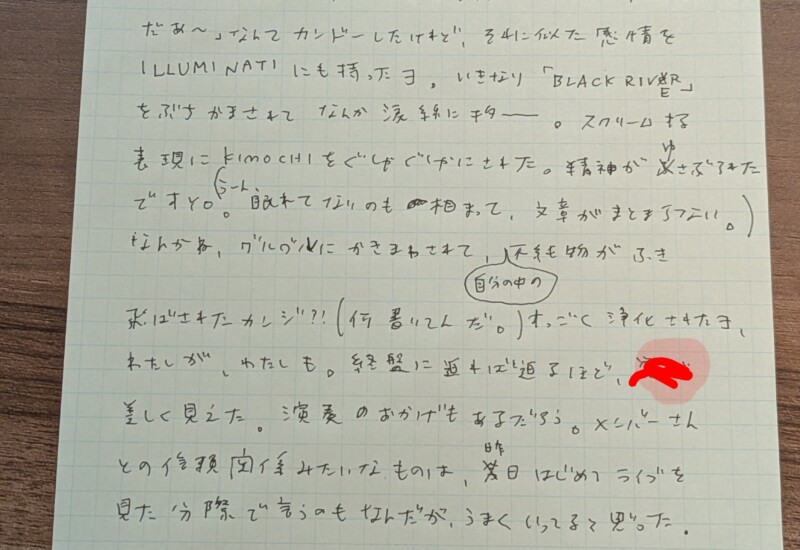 だあ〜」なんてカンドーしたけれど、それに似た感情を
ILLUMINATI にも持ったヨ。いきなり「BLACK RIVER」
をぶちかまされて なんか涙線にキター。スクリームする
表現にKIMOCHIをぐしゃぐしゃにされた。精神がゆさぶられた
ですyo。(うーん。眠れてないのも相まって、文章がまとまらない。)
なんかね、グルグルにかきまわされて、自分の中の不純物がふき
飛ばされたカンジ?!(何書いてんだ。)すっごく浄化されたヨ、
わたしが、わたしも。終盤に迫れば迫るほど、
差しく見えた。演奏のおかげもあるだろう。メンバーさん
との信頼関係みたいなものは、昨日はじめてライブを
見た分際で言うのもなんだが、うまくいってると思った。